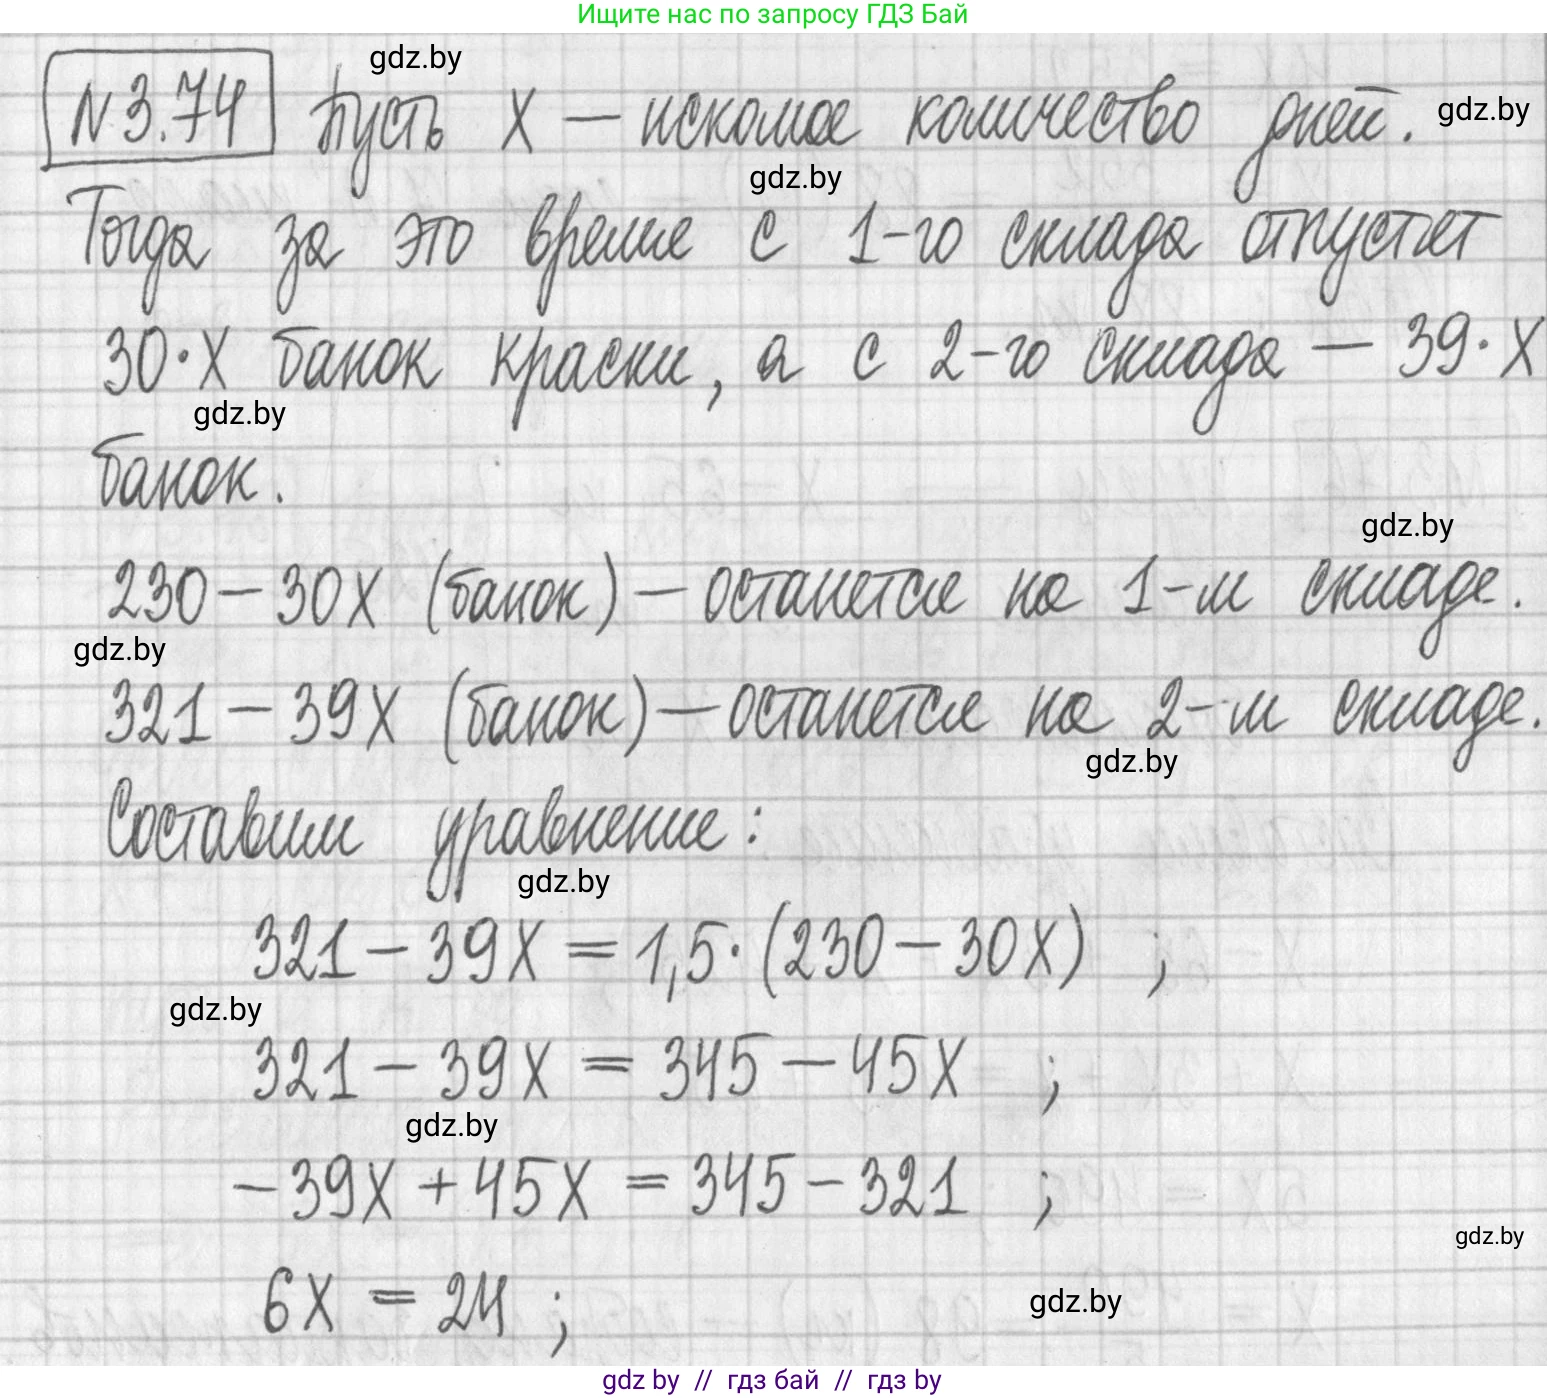 Ищите нас по запросу ГДЗ Бай
gdz.by
N 3.74 Пусть X — искомое количество дней.
gdz.by
gdz.by
Тогда за это время с 1-го склада отпустят
30·X банок краски, а с 2-го склада — 39·X
gdz.by
банок.
gdz.by
230 – 30X (банок) — останется на 1-м складе.
gdz.by
321 – 39X (банок) — останется на 2-м складе.
gdz.by
Составим уравнение:
gdz.by
321 – 39X = 1,5·(230 – 30X) ;
gdz.by
321 – 39X = 345 – 45X ;
gdz.by
–39X + 45X = 345 – 321 ;
gdz.by
6X = 24 ;
gdz.by
gdz by // гдз бай // гдз by